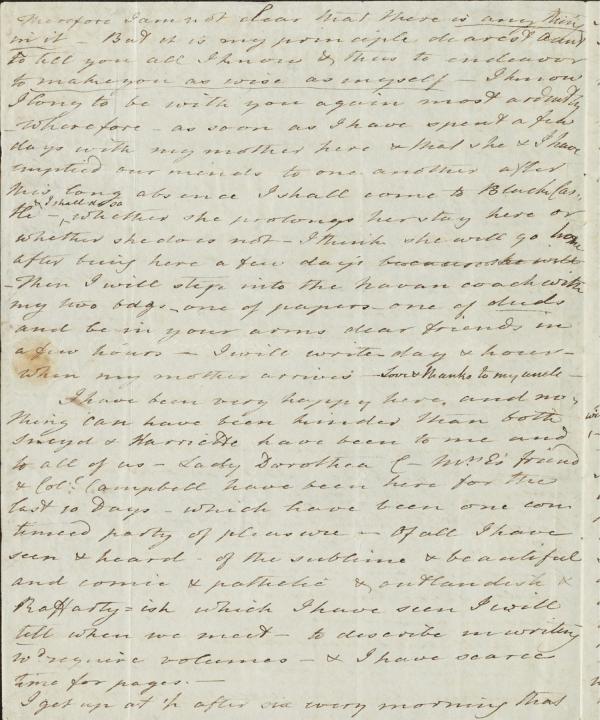 Therefore I am not clear that there is any thing
in it – But it is my principle dearest Aunt
to tell you all I know & thus to endeavor
to make you as wise as myself – I know
I long to be with you again most ardently
– Wherefore – as soon as I have spent a few
days with my mother here & that she & I have
emptied our minds to one another after
this long absence I shall come to Black Cas-
& I shall do so
tle – whether she prolongs her stay here or
whether she does not – I think she will go home
after being here a few days because she will
– Then I will step into the Navan coach with
my two bags – one of papers – one of duds
and be in your arms dear friends in
a few hours – I will write day & hour –
when my mother arrives – Love & thanks to my uncle –
I have been very happy here, and no-
thing can have been kinder than both
Sneyd & Harriette have been to me and
to all of us – Lady Dorothea C – Mrs E's friend
& Col: Campbell have been here for the
last 10 Days – which have been one con
tinued party of pleasure – Of all I have
seen & heard – of the sublime & beautiful
and comic & pathetic & outlandish &
Raffarty=ish which I have seen I will
tell when we meet – to describe in writing
wd require volumes – & I have scarce
time for pages. –
I get up at ½ after six every morning that